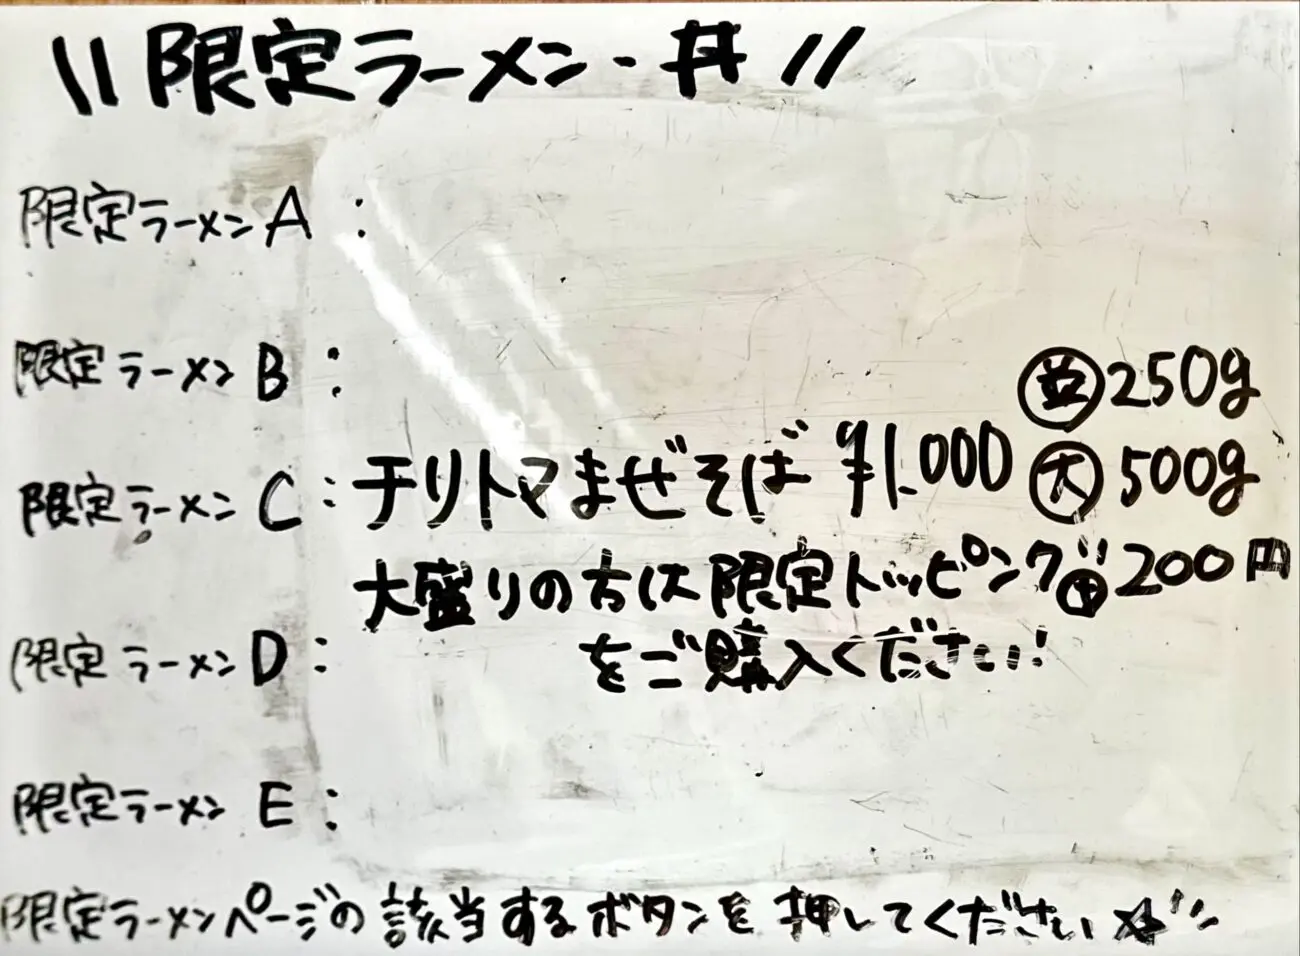 \\ 限定ラーメン・丼 //
限定ラーメン A :
限定ラーメン B :
㊥250g
限定ラーメン C : チリトマまぜそば ¥1.000 大 500g
大盛りの方は限定トッピング 200円
限定ラーメン D :
をご購入ください!
限定ラーメン E :
限定ラーメンページの該当するボタンを押してください☆